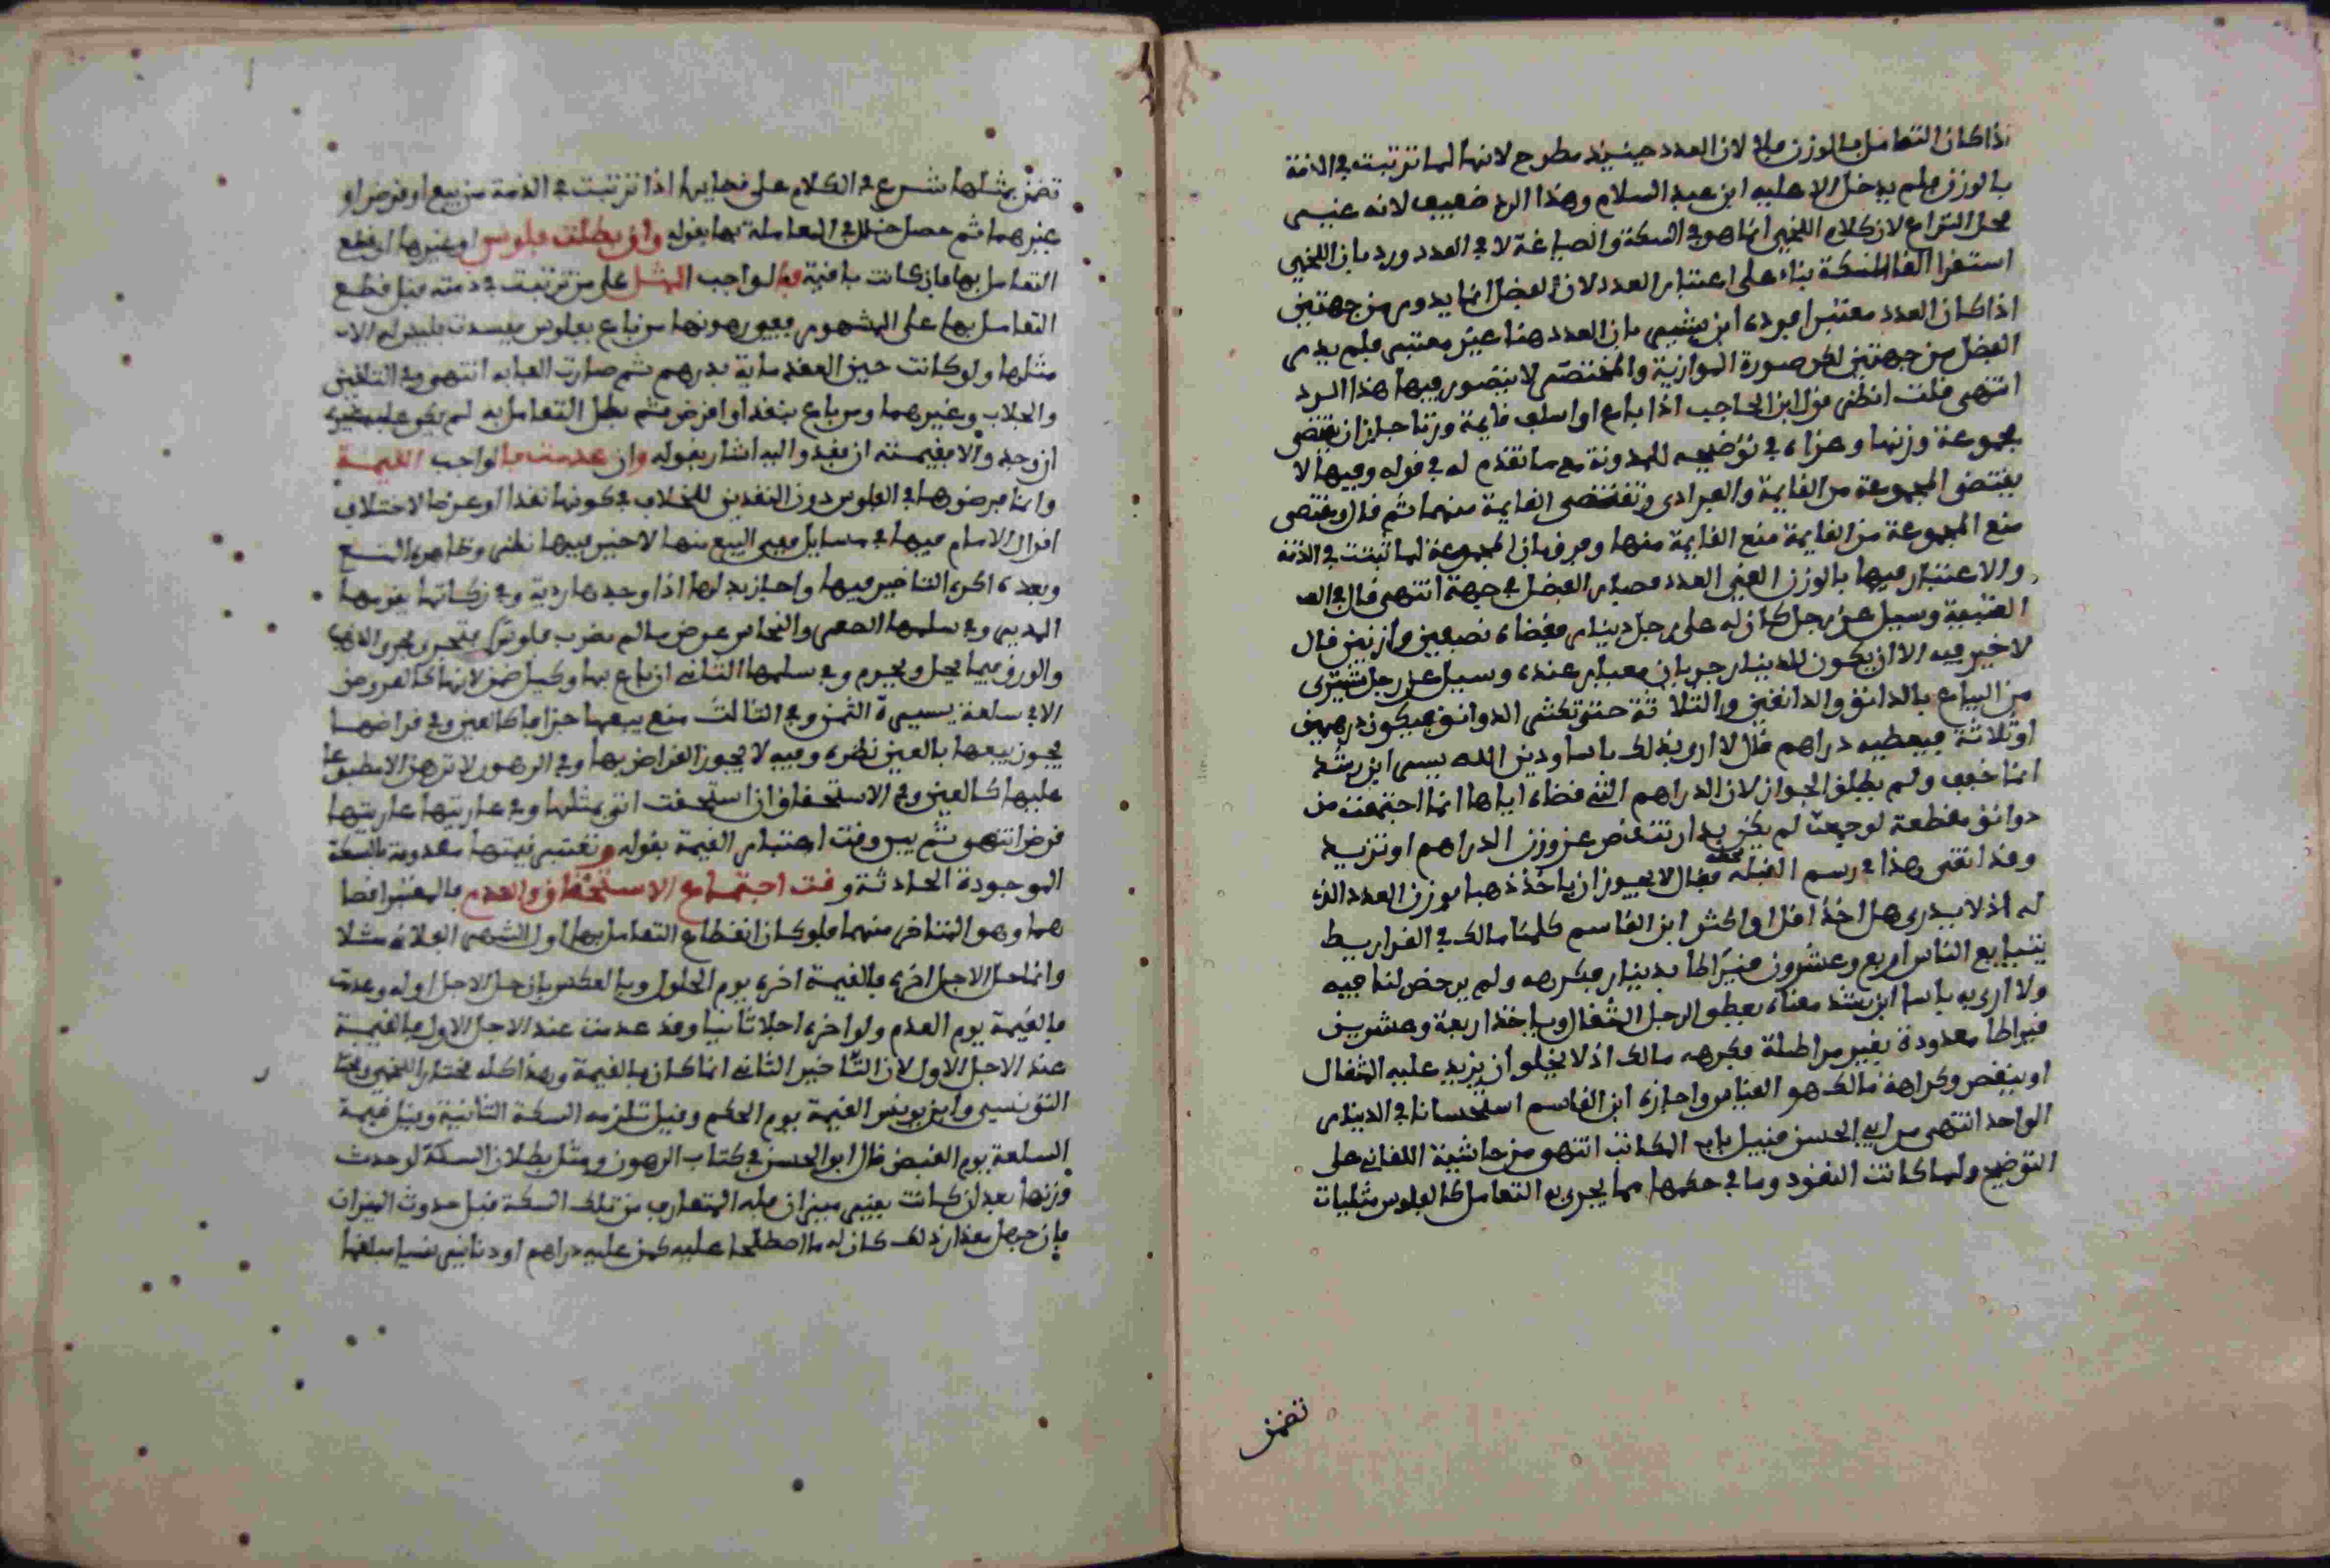 اذا كان التعامل بالوزن فلا لان العدد حينيذ مطرح لانها لما ترتبت في الذمة
بالوزن فلم يدخل الا عليه ابن عبد السلام وهذا الرد ضعيف لانه غيير
محل النزاع لان كلام اللخمي انما هو في السكة والصياغة لا في العدد ورد بان اللخمي
استقرا الغا السكة بناء على اعتبار العدد لان الفضل انما يدور من جهتين
اذا كان العدد معتبرا فرده ابن بشير بان العدد هنا غير معتبر فلم يدر
الفضل من جهتين لكن صورة الموازنية والمختصر لا يتصور فيها هذا الرد
انتهى قلت انظر قول ابن الحاجب اذا باع او اسلف قايمة وزنا جاز ان يقتضي
مجموعة وزنها وعزاه في توضيحه للمدونة مع ما تقدم له في قوله وفيها لا
يقتضى المجموعة من القايمة والفرادى وتقتضى القايمة منهما ثم قال ونقضى
منع المجموعة من القايمة منع القايمة منها وفرق بان المجموعة لما ثبتت في الذمة
والاعتبار فيها بالوزن الغي العدد فصار الفضل في جهة انتهى قال في
العتبية وسيل عن رجل كان له على رجل دينار فقضاه نصفين وازنين قال
لا خير فيه الا ان يكون للدينار جريان معيار عنده وسيل عن رجل يشترى
من البياع بالدانق والدانقين والثلاثة حتى تكثر الدوانق فيكون درهمين
او ثلاثة فيعطيه دراهم قال لا ارى بذلك باسا ودين الله يسر ابن رشد
انما خفف ولم يطلق الجواز لان الدراهم التي قضاه اياها انما اجتمعت من
دوانق مقطعة لو جمعت لم يكن بد ان تنقص عن وزن الدراهم او تزيد
وقد اتقى هذا في رسم القبلة فقال لا يجوز ان ياخذ ذهبا بوزن العدد الذي
له اذ لا يدرى هل اخذ اقل او اكثر ابن القاسم كلمنا مالك في القراريط
يتبايع الناس اربع وعشرون قيراطا بدينار فكرهه ولم يرخص لنا فيه
ولا ارى به باسا ابن رشد معناه يعطى الرجل المثقال وياخذ اربعة وعشرين
قيراطا معدودة بغير مراطلة فكرهه مالك اذ لا يخلو ان يزيد عليه المثقال
او ينقص وكراهة مالك هو القياس واجازه ابن القاسم استحسانا في الدينار
الواحد انتهى من ابي الحسن قبيل باب المكاتب انتهى من حاشية اللقاني على
التوضيح ولما كانت النقود وما في حكمها مما يجرى به التعامل كالفلوس مثليات
تضمن
تضمن بمثلها شرع في الكلام على احكامها اذا ترتبت في الذمة من بيع او قرض او
غيرهما ثم حصل خلل في المعاملة بها بقوله وان بطلت فلوس او غيرها او قطع
التعامل بها فان كانت باقية فالواجب المثل على من ترتبت في ذمته قبل قطع
التعامل بها على المشهور ففي رهونها من باع بفلوس ففسدت فليس له الا
مثلها ولو كانت حين العقد ماية بدرهم ثم صارت الفا به انتهى وفي التلقين
والجلاب وغيرهما ومن باع بنقد او اقرض ثم بطل التعامل به لم يكن عليه غيره
ان وجد والا فقيمته ان فقد واليه اشار بقوله وان عدمت فالواجب القيمة
وانما فرضوها في الفلوس دون النقدين للخلاف في كونها نقدا او عرضا لاختلاف
اقوال الامام فيها في مسايل ففي البيع منها لا خير فيها نظر وظاهره المنع
وبعده اكره التاخير فيها واجاز بدلها اذا وجدها ردية وفي زكاتها يقومها
المدير وفي سلمها الصفر والنحاس عرض ما لم يضرب فلوسا فتجرى مجرى الذهب
والورق فيما يحل ويحرم وفي سلمها الثاني ان باع بها وكيل ضمن لانها كالعروض
الا في سلعة يسيرة الثمن وفي الثالث منع بيعها جزافا كالعين وفي قراضها
يجوز بيعها بالعين نظرة وفيه لا يجوز القراض بها وفي الرهون لا ترهن الا مطبوعا
عليها كالعين وفي الاستحقاق ان استحقت اتى بمثلها وفي عاريتها عاريتها
قرض انتهى ثم بين وقت اعتبار القيمة بقوله وتعتبر قيمتها معدومة بالسكة
الموجودة الحادثة وقت اجتماع الاستحقاق والعدم فالمعتبر اقصا
هما وهو المتاخر منهما فلو كان انقطاع التعامل بها اول الشهر الفلاني مثلا
وانما حل الاجل اخره فالقيمة اخره يوم الحلول وبالعكس بان حل الاجل اوله وعدمت
فالقيمة يوم العدم ولو اخره اجلا ثانيا وقد عدمت عند الاجل الاول فالقيمة
عند الاجل الاول لان التاخير الثاني انما كان بالقيمة وهذا كله مختار اللخمي
التونسي وابن يونس القيمة يوم الحكم وقيل تلزمه السكة الثانية وقيل قيمة
السلعة يوم القبض قال ابو الحسن في كتاب الرهون ومثل بطلان السكة لو حدث
وزنها بعد ان كانت بغير ميزان فله المتعارف من تلك السكة قبل حدوث الميزان
فان جهل مقدار ذلك كان له ما اصطلحا عليه كمن عليه دراهم او دنانير نسيا مبلغها